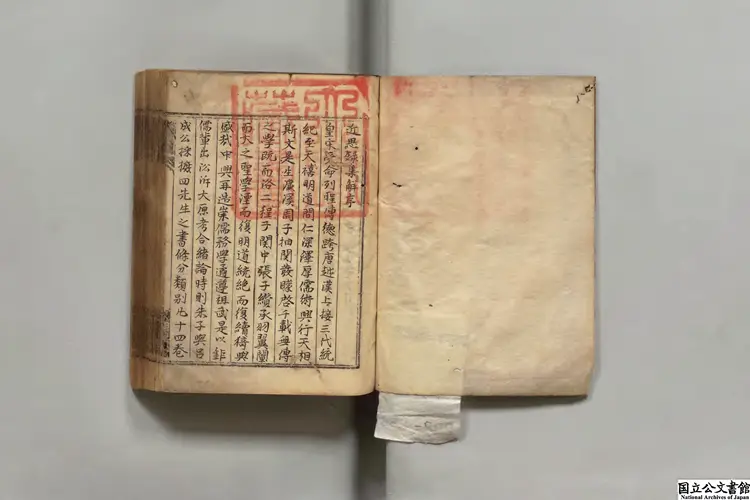 近思録集解序
皇宋受命列聖傳德跨唐越漢上接三代統
紀至天禧明道間仁深澤厚儒術興行天相
斯文是生濂溪周子抽關發矇啓千載無傳
之學既而洛二程子關中張子纘承羽翼闡
而大之聖學湮而復明道統絶而復續猗與
盛哉中興再造崇儒務學遹遵祖武是以鉅
儒輩出沿泝大原考合緒論時則朱子與呂
成公採摭四先生之書條分類別凡十四卷
国立公文書館
National Archives of Japan